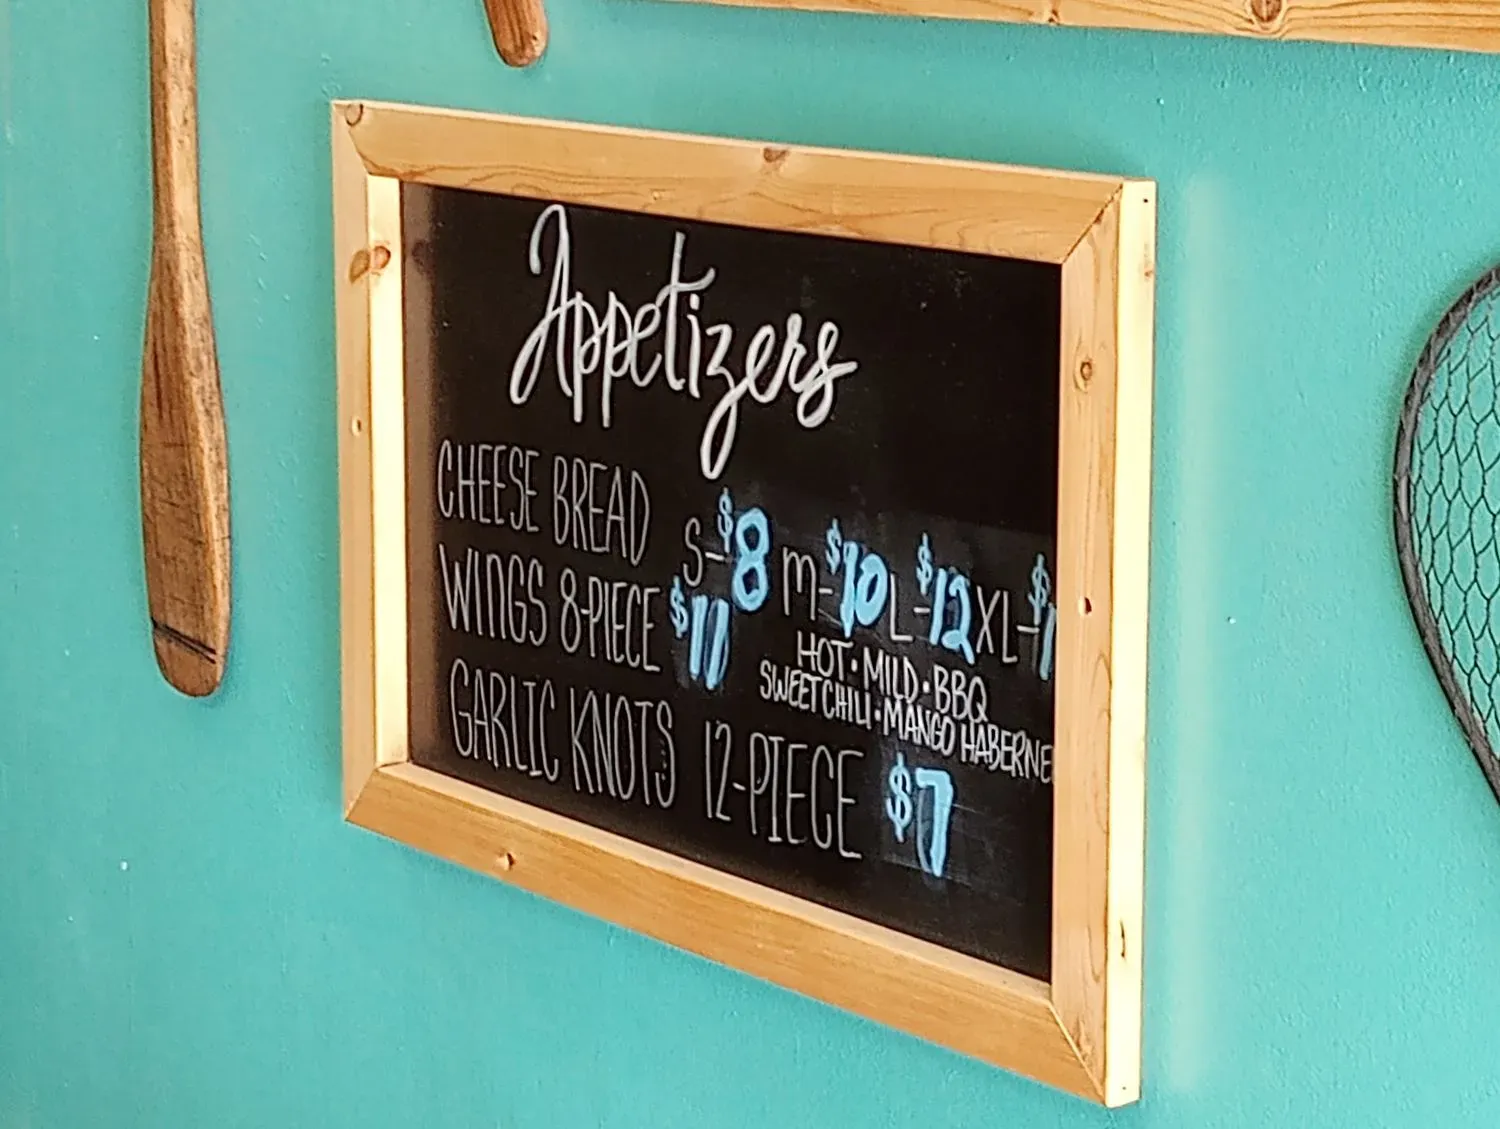 Appetizers
CHEESE BREAD S-$8 M-$10 L-$12 XL-$1
WINGS 8-PIECE $11 HOT • MILD • BBQ
SWEET CHILI • MANGO HABERNE
GARLIC KNOTS 12-PIECE $7